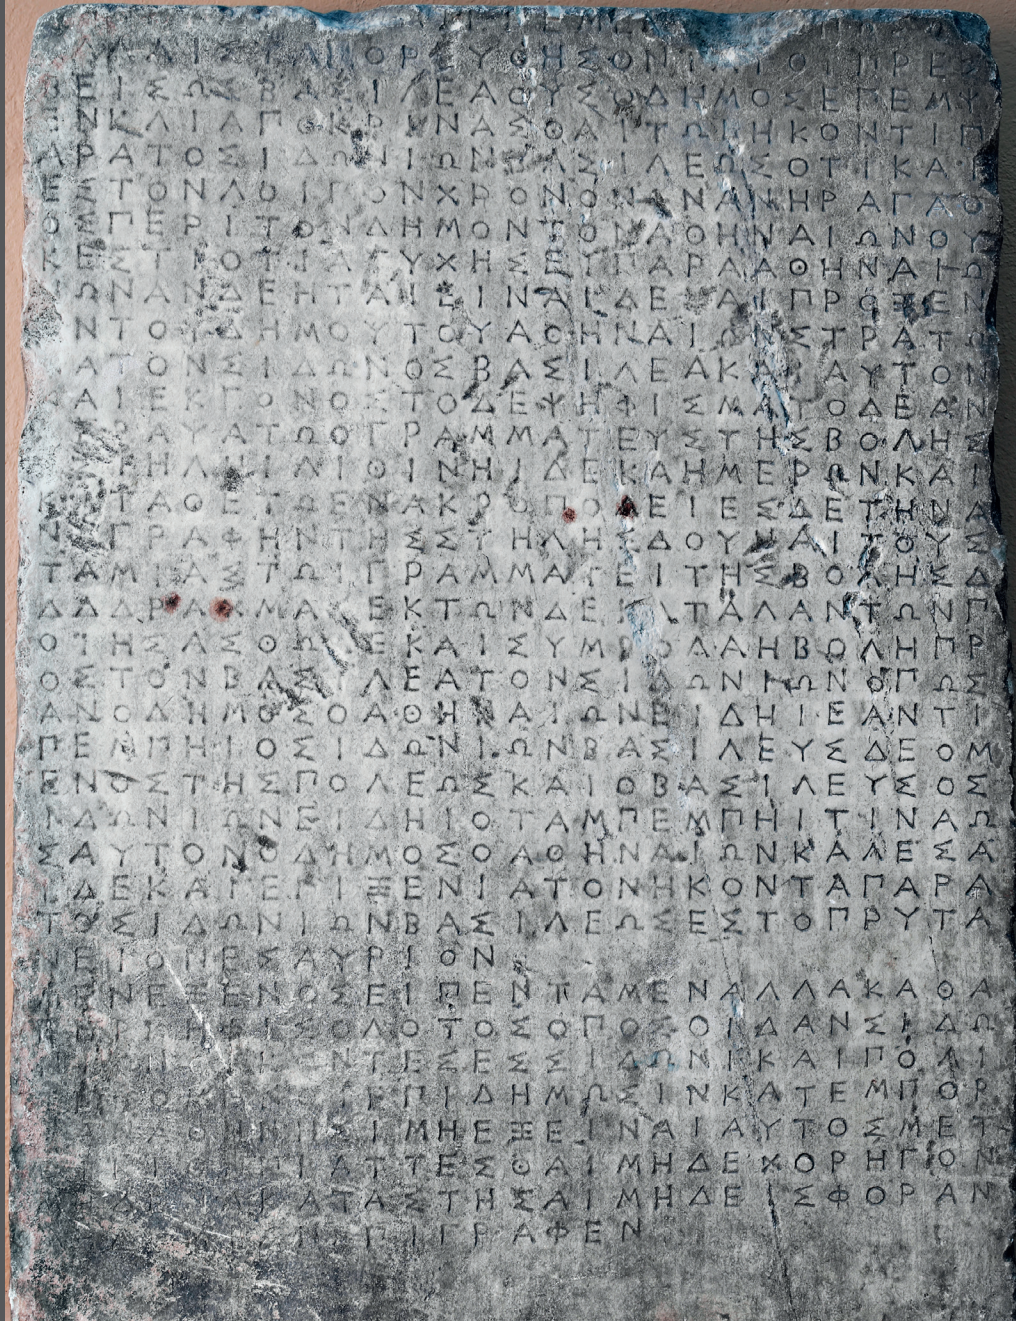 ΛΛΙΣΤΑ ΠΟΡΕΥΘΗΣΟΝΤΑΙ ΟΙ ΠΡΕΣ
ΒΕΙΣΩΣΒΑΣΙΛΕΑΟΥΣΟΔΗΜΟΣΕΠΕΜΨ
ΕΝΚΑΙΑΠΟΚΡΙΝΑΣΘΑΙΤΩΙΗΚΟΝΤΙΠ
ΑΡΑΤΟΣΙΔΩΝΙΩΝΒΑΣΙΛΕΩΣΟΤΙΚΑΙΕ
ΣΤΟΝΛΟΙΠΟΝΧΡΟΝΟΝΩΝΑΝΗΡΑΓΑΘ
ΟΣΠΕΡΙΤΟΝΔΗΜΟΝΤΟΝΑΘΗΝΑΙΩΝΟΥ
ΚΕΣΤΙΟΤΙΑΤΥΧΗΣΕΙΠΑΡΑΑΘΗΝΑΙΩ
ΝΩΝΑΝΔΕΗΤΑΙΕΙΝΑΙΔΕΚΑΙΠΡΟΞΕΝ
ΟΝΤΟΥΔΗΜΟΥΤΟΥΑΘΗΝΑΙΩΝΣΤΡΑΤΩ
ΝΑΤΟΝΣΙΔΩΝΟΣΒΑΣΙΛΕΑΚΑΙΑΥΤΟΝ
ΚΑΙΕΚΓΟΝΟΣΤΟΔΕΨΗΦΙΣΜΑΤΟΔΕΑΝ
ΑΓΡΑΨΑΤΩΟΓΡΑΜΜΑΤΕΥΣΤΗΣΒΟΛΗΣ
ΕΣΤΗΛΗΙΛΙΘΙΝΗΙΔΕΚΑΗΜΕΡΩΝΚΑΙ
ΚΑΤΑΘΕΤΩΕΝΑΚΡΟΠΟΛΕΙΕΣΔΕΤΗΝΑ
ΝΑΓΡΑΦΗΝΤΗΣΣΤΗΛΗΣΔΟΥΝΑΙΤΟΥΣ
ΤΑΜΙΑΣΤΩΙΓΡΑΜΜΑΤΕΙΤΗΣΒΟΛΗΣΔ
ΔΔΔΡΑΧΜΑΣΕΚΤΩΝΔΕΚΑΤΑΛΑΝΤΩΝΠ
ΟΙΗΣΑΣΘΩΔΕΚΑΙΣΥΜΒΟΛΑΗΒΟΛΗΠΡ
ΟΣΤΟΝΒΑΣΙΛΕΑΤΟΝΣΙΔΩΝΙΩΝΟΠΩΣ
ΑΝΟΔΗΜΟΣΟΑΘΗΝΑΙΩΝΕΙΔΗΙΕΑΝΤΙ
ΠΕΜΠΗΙΟΣΙΔΩΝΙΩΝΒΑΣΙΛΕΥΣΔΕΟΜ
ΕΝΟΣΤΗΣΠΟΛΕΩΣΚΑΙΟΒΑΣΙΛΕΥΣΟΣ
ΙΔΩΝΙΩΝΕΙΔΗΙΟΤΑΜΠΕΜΠΗΙΤΙΝΑΩ
ΣΑΥΤΟΝΟΔΗΜΟΣΟΑΘΗΝΑΙΩΝΚΑΛΕΣΑ
ΙΔΕΚΑΙΕΠΙΞΕΝΙΑΤΟΝΗΚΟΝΤΑΠΑΡΑ
ΤΟΣΙΔΩΝΙΩΝΒΑΣΙΛΕΩΣΕΣΤΟΠΡΥΤΑ
ΝΕΙΟΝΕΣΑΥΡΙΟΝ
ΜΕΝΕΞΕΝΟΣΕΙΠΕΝΤΑΜΕΝΑΛΛΑΚΑΘΑ
ΠΕΡΚΗΦΙΣΟΔΟΤΟΣΟΠΟΣΟΙΔΑΝΣΙΔΩ
ΝΤΕΣΕΣΣΙΔΩΝΙΚΑΙΠΟΛΙ
ΕΠΙΔΗΜΩΣΙΝΚΑΤΕΜΠΟΡ
ΑΘΗΝΗΣΙΜΗΕΞΕΙΝΑΙΑΥΤΟΣΜΕΤ
ΑΤΤΕΣΘΑΙΜΗΔΕΧΟΡΗΓΟΝ
ΚΑΤΑΣΤΗΣΑΙΜΗΔΕΙΣΦΟΡΑΝ
ΕΠΙΓΡΑΦΕΝ